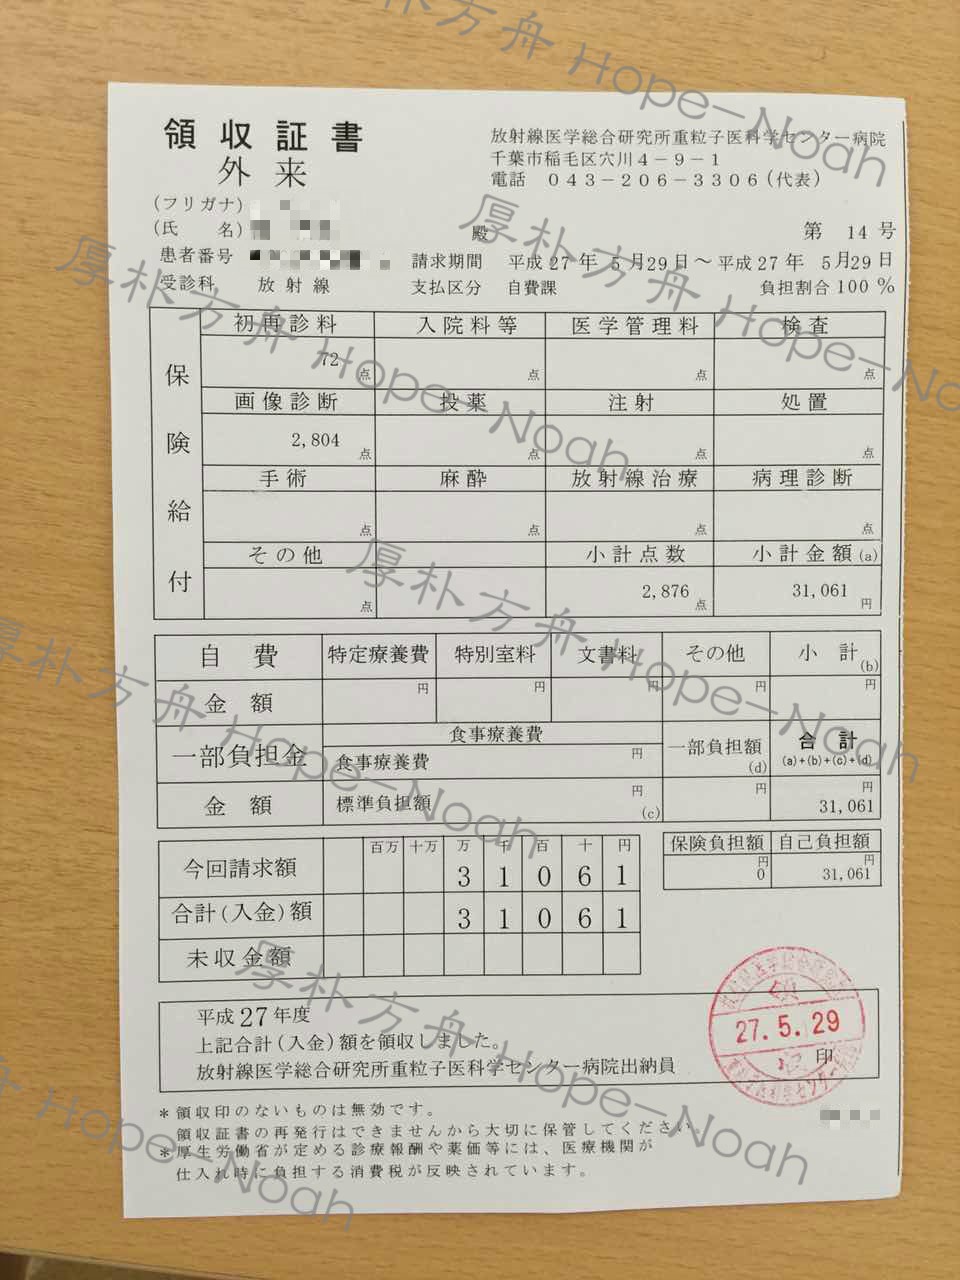 領収証書
外来
放射線医学総合研究所重粒子医科学センター病院
千葉市稲毛区穴川4-9-1
電話 043-206-3306(代表)
(フリガナ)
(氏 名) 殿 第 14号
患者番号 請求期間 平成27年 5月29日~平成27年 5月29日
受診科 放射線 支払区分 自費課 負担割合100%
保険給付
初再診料 入院料等 医学管理料 検査
72点 点 点 点
画像診断 投薬 注射 処置
2,804点 点 点 点
手術 麻酔 放射線治療 病理診断
点 点 点 点
その他 小計点数 小計金額(a)
点 2,876点 31,061円
自費 特定療養費 特別室料 文書料 その他 小計(b)
金額 円 円 円 円 円
一部負担金 食事療養費 一部負担額(d) 合計
(a)+(b)+(c)+(d)
食事療養費 円
金額 標準負担額 円(c) 円 円
31,061
百万 十万 万 千 百 十 円
今回請求額 3 1 0 6 1
合計(入金)額 3 1 0 6 1
未収金額
保険負担額 自己負担額
円 円
0 31,061
平成27年度
上記合計(入金)額を領収しました。
放射線医学総合研究所重粒子医科学センター病院出納員
27.5.29
印
*領収印のないものは無効です。
領収証書の再発行はできませんから大切に保管してください。
*厚生労働省が定める診療報酬や薬価等には、医療機関が
仕入れ時に負担する消費税が反映されています。
厚朴方舟 Hope-Noah
厚朴方舟 Hope-Noah
厚朴方舟 Hope-Noah
厚朴方舟 Hope-Noah
厚朴方舟 Hope-Noah
厚朴方舟 Hope-Noah